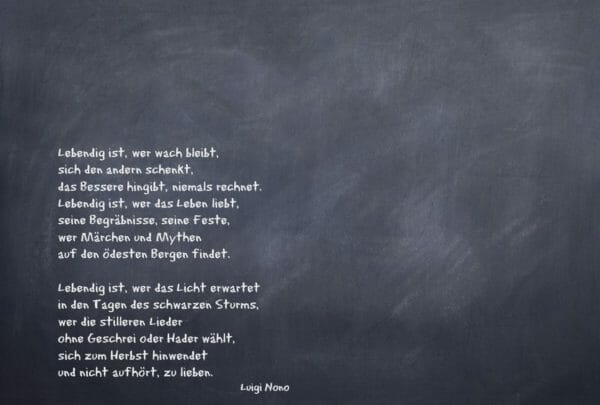 Lebendig ist, wer wach bleibt,
sich den andern schenkt,
das Bessere hingibt, niemals rechnet.
Lebendig ist, wer das Leben liebt,
seine Begräbnisse, seine Feste,
wer Märchen und Mythen
auf den ödesten Bergen findet.
Lebendig ist, wer das Licht erwartet
in den Tagen des schwarzen Sturms,
wer die stilleren Lieder
ohne Geschrei oder Hader wählt,
sich zum Herbst hinwendet
und nicht aufhört, zu lieben.
Luigi Nono